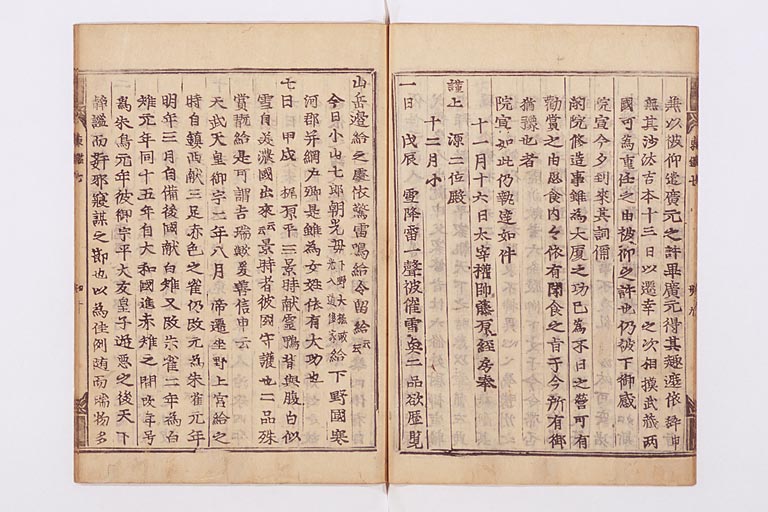 無以被仰遣廣元之許畢廣元得其趣遮依詳申
無其沙汰吉本十三日以還幸之次相摸武藏兩
國可為重任之由被仰之許也仍被下御感
院宣今夕到來其詞偁
院修造事雖為大厦之功已為不日之營可有
勸賞之由思食內々依有聞食之旨于今所有御
猶豫也者
院宣如此仍執達如件
十一月十六日太宰權帥藤原經房奉
謹上 源二位殿
十二月小
一日 戊辰 雪降雷一聲彼雀雪與二品欲歷覽
山岳邊給之處依驚雷鳴給令留給云云
今日小山七郎朝光母下野大掾政光入道後家給下野國寒
河郡并網戶鄉是雖為女姓依有大功也
七日 甲戌 梶原平三景時献靈鴨背與腹白似
雪自美濃國出來云云景時者彼國守護也二品殊
賞翫給是可謂吉瑞歟爰善信申云
天武天皇御宇二年八月 帝遷坐野上宮給之
時自鎮西献三足赤色之雀仍改元為朱雀元年
明年三月自備後國献白雉又改朱雀二年為白
雉元年同十五年自大和國進赤雉之間改年号
為朱鳥元年彼御宇平大友皇子逆惡之後天下
靜謐而 邪寂謀之 也以為佳例随而瑞物多